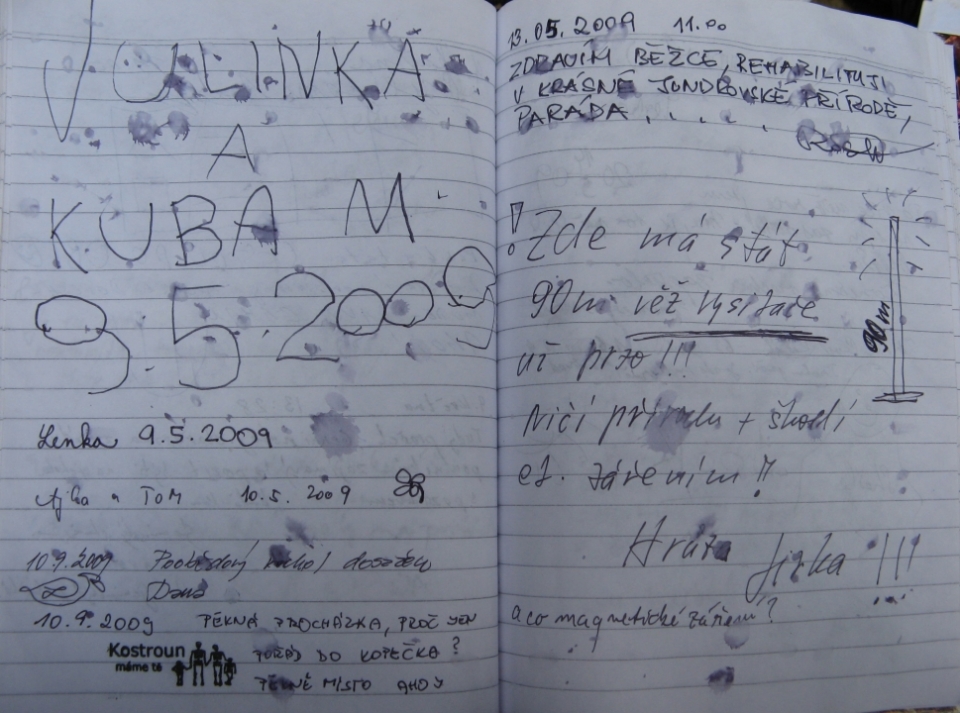 JULINKA
A
KUBA M.
9.5.2009
Lenka 9.5.2009
a TOM 10.5.2009
10.9.2009
Dana
10.9.2009 PĚKNÁ PROCHÁZKA, PROČ JEN
Kostroun
máme tě
POŘÁD DO KOPEČKA?
PĚKNÉ MÍSTO AHOJ
13.05.2009 11.00
ZDRAVÍM BĚŽCE, REHABILITUJI
V KRÁSNÉ JUNDROVSKÉ PŘÍRODĚ,
PARÁDA . . . .
! Zde má stát
90m věž vysílače
90m
už prso!!!
Ničí přírodu + škodí
el. zářením!!
Hrůza Jirka!!!
a co magnetické záření?